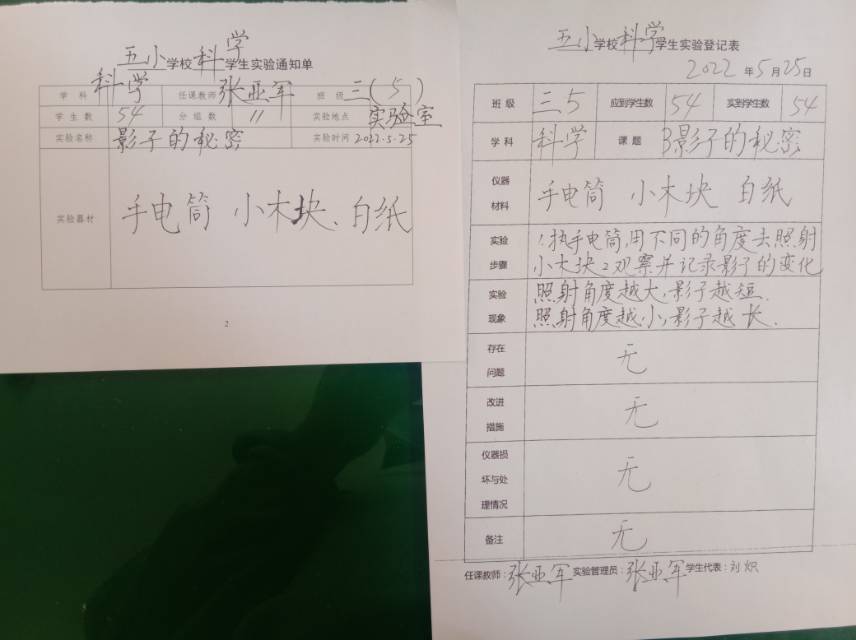 五小学校科学学生实验通知单
学科 科学 任课教师 张亚军 班级 三(5)
学生数 54 分组数 11 实验地点 实验室
实验名称 影子的秘密 实验时间 2022.5.25
实验器材 手电筒 小木块、白纸
2
五小学校科学学生实验登记表
2022年5月25日
班级 三5 应到学生数 54 实到学生数 54
学科 科学 课题 3影子的秘密
仪器
材料
手电筒 小木块 白纸
实验 1.执手电筒,用不同的角度去照射
步骤 小木块2观察并记录影子的变化
实验 照射角度越大,影子越短.
现象 照射角度越小,影子越长.
存在
问题
无
改进
措施
无
仪器损
坏与处
理情况
无
备注 无
任课教师:张亚军 实验管理员:张亚军 学生代表:刘炽